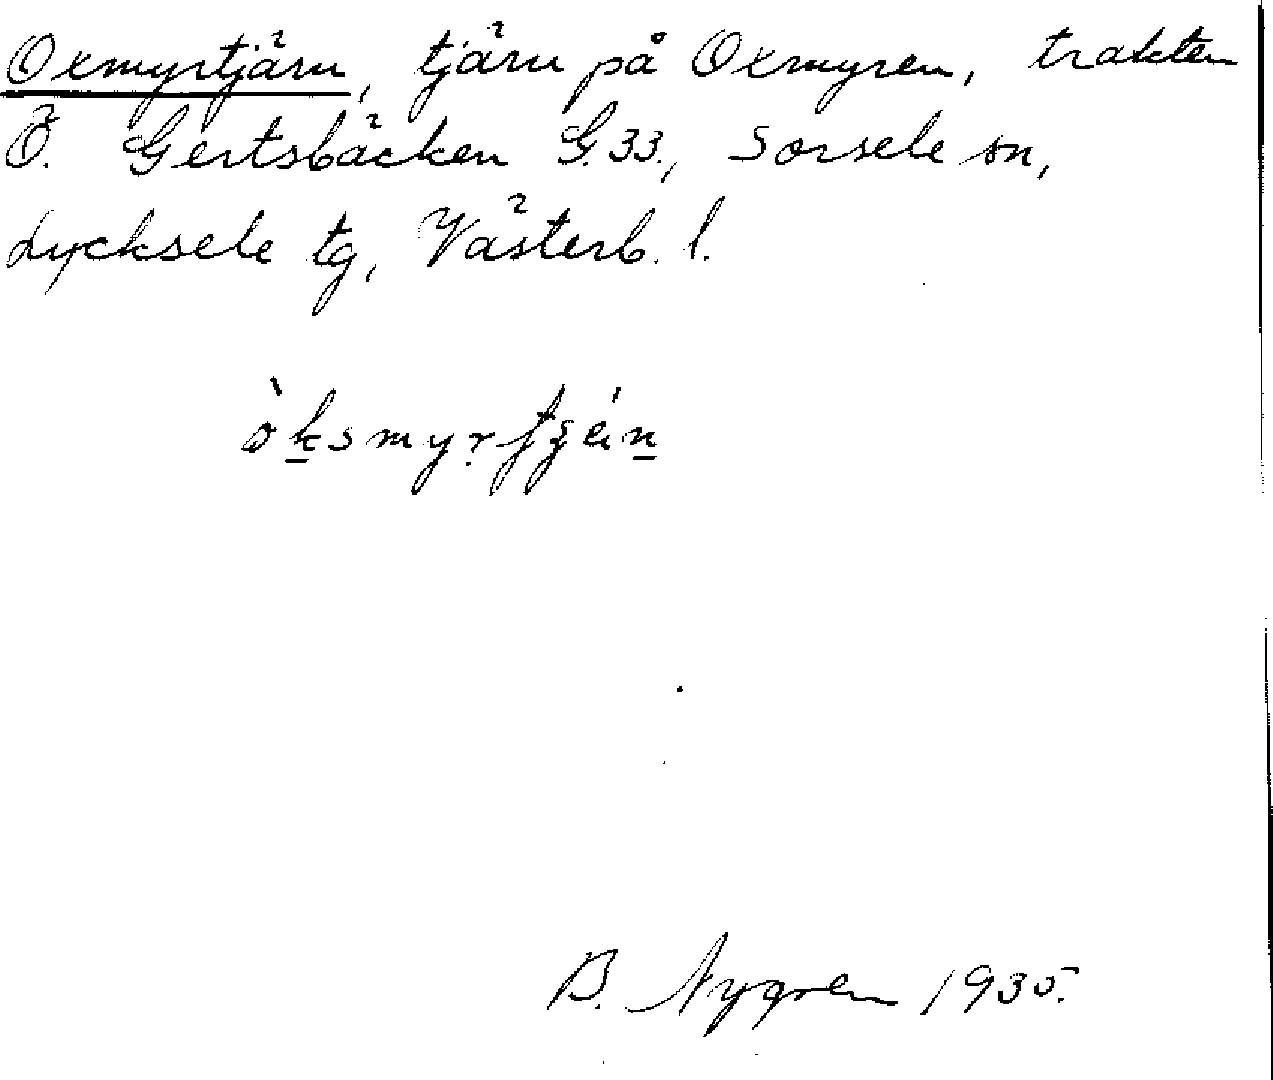 Oxmyrtjärn, tjärn på Oxmyren, trakten
Ö. Gertsbäcken G.33., Sorsele sn,
Lycksele tg, Västerb. l.
òksmyrtjén
B. Nygren 1935.